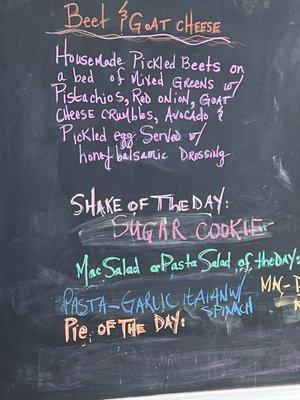 Beet & GOAT CHEESE
Housemade Pickled Beets on
a bed of Mixed Greens w/
Pistachios, Red onion, Goat
Cheese Crumbles, Avocado &
Pickled egg Served w/
honey balsamic Dressing
SHAKE OF THE DAY:
SUGAR COOKIE
Mac Salad or Pasta Salad of the DAY:
PASTA-GARLIC ITAIAN W/
SPINACH
Pie OF THE DAY: